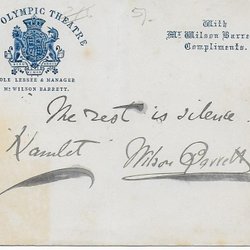 OLYMPIC THEATRE
SOLE LESSEE & MANAGER
MR WILSON BARRETT.
With
Mr Wilson Barrett
Compliments.
5/-
The rest is silence
Hamlet
Wilson Barrett